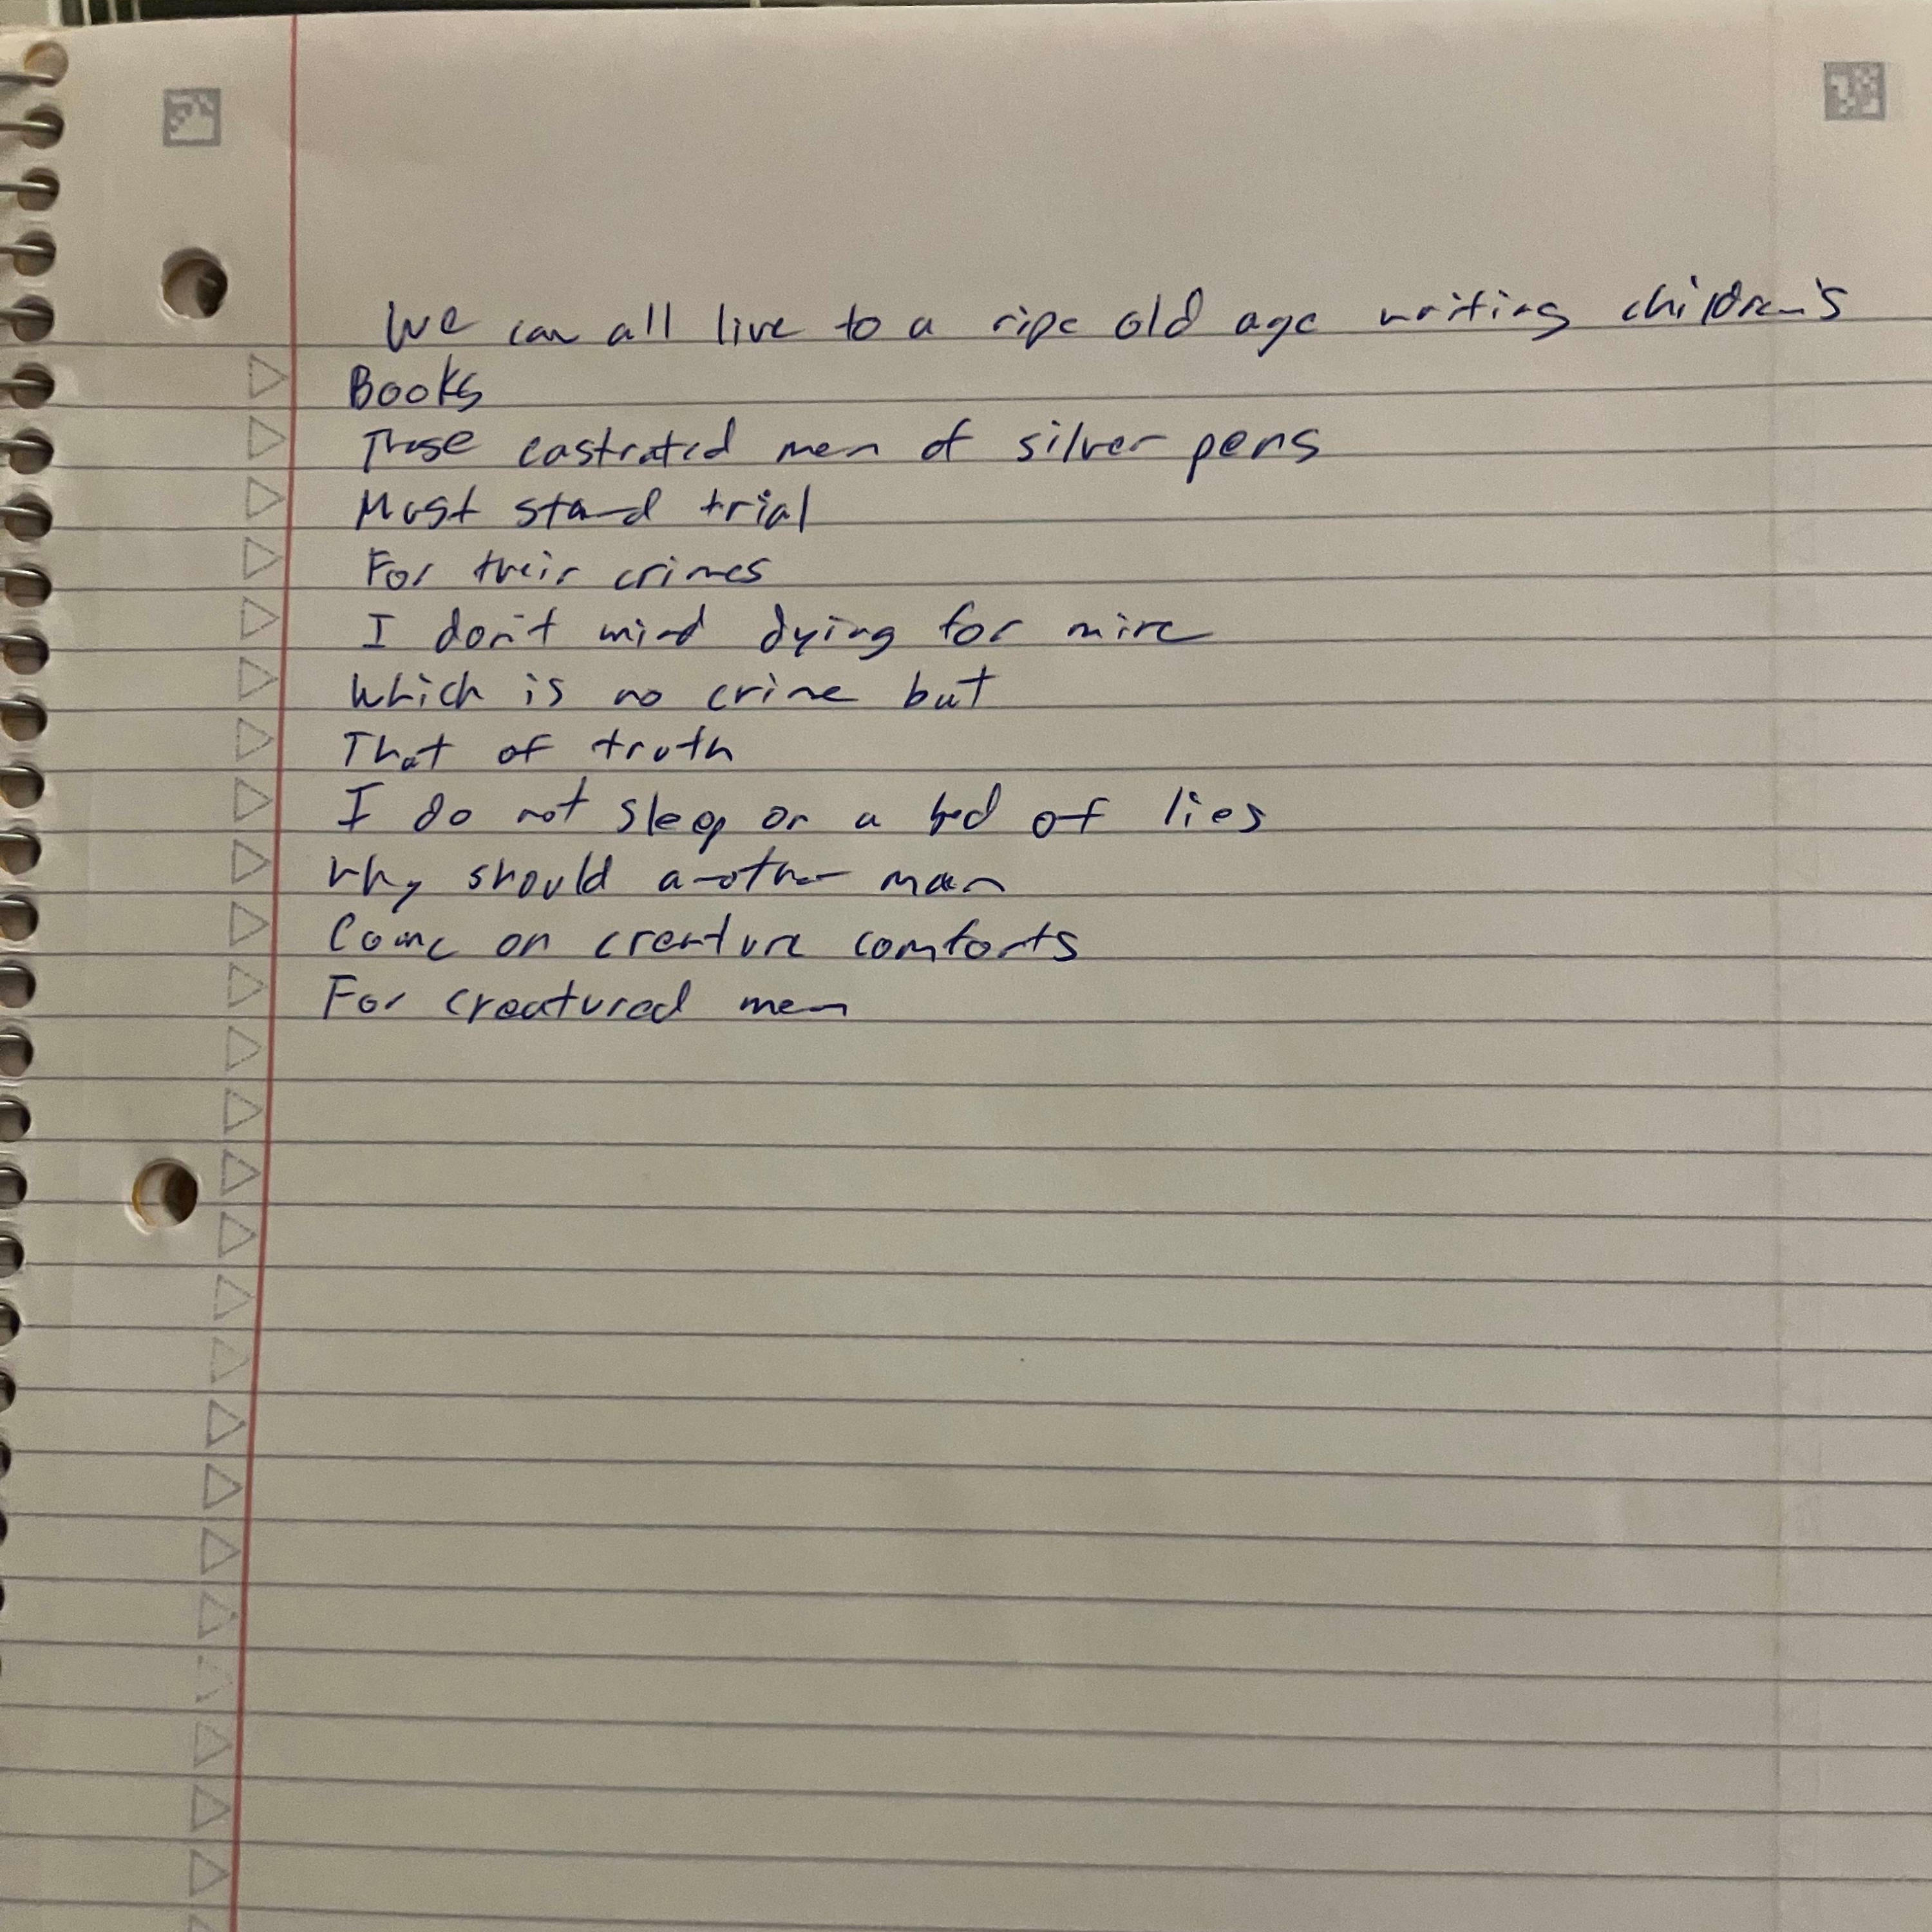 We can all live to a ripe old age writing children's
Books
These castrated men of silver pens
Must stand trial
For their crimes
I don't mind dying for mine
Which is no crime but
That of truth
I do not sleep on a bed of lies
Why should another man
Come on creature comforts
For creatured men